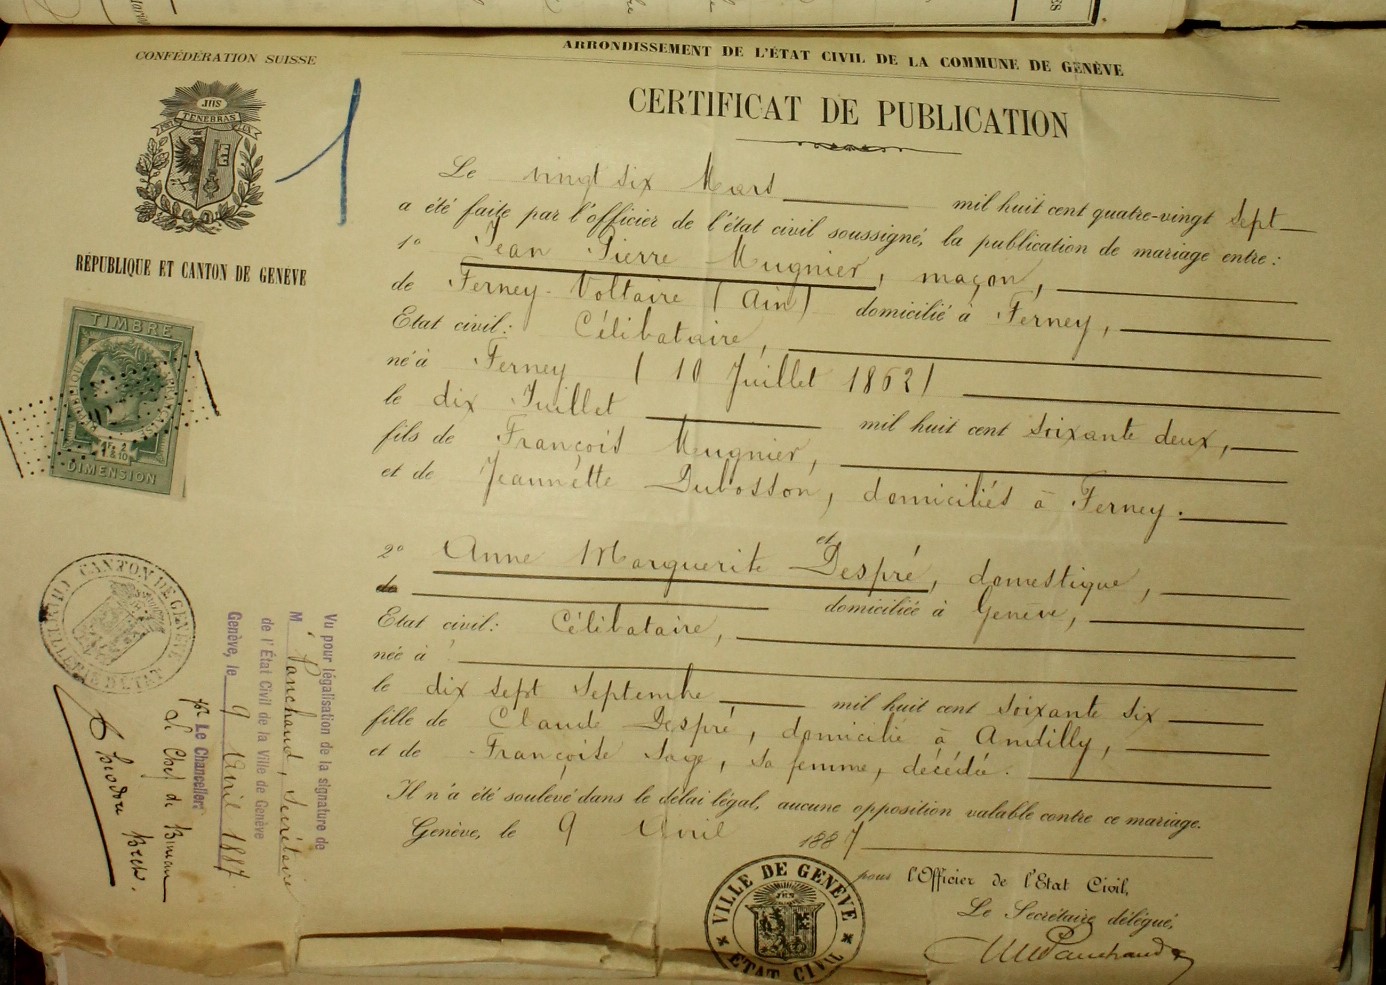 ARRONDISSEMENT DE L'ÉTAT CIVIL DE LA COMMUNE DE GENÈVE
CONFÉDÉRATION SUISSE
JHS
POST TENEBRAS LUX
RÉPUBLIQUE ET CANTON DE GENÈVE
1
CERTIFICAT DE PUBLICATION
Le vingt six Mars mil huit cent quatre-vingt sept
a été faite par l'officier de l'état civil soussigné, la publication de mariage entre:
1º Jean Pierre Mugnier, maçon,
de Ferney-Voltaire (Ain) domicilié à Ferney,
Etat civil: Célibataire,
né à Ferney (10 Juillet 1862)
le dix Juillet mil huit cent soixante deux,
fils de François Mugnier,
et de Jeannette Dubosson, domiciliés à Ferney.
et
2º Anne Marguerite Despré, domestique,
de domiciliée à Genève,
Etat civil: Célibataire,
née à
le dix sept Septembre mil huit cent soixante six
fille de Claude Despré, domicilié à Andilly,
et de Françoise Sage, sa femme, décédée.
Il n'a été soulevé dans le délai légal, aucune opposition valable contre ce mariage.
Genève, le 9 Avril 1887
pour l'Officier de l'Etat Civil,
Le Secrétaire délégué,
Pauchaud
VILLE DE GENÈVE
ETAT CIVIL
TIMBRE
RÉPUBLIQUE FRANÇAISE
DIMENSION
CANTON DE GENÈVE
CHANCELLERIE D'ÉTAT
Vu pour légalisation de la signature de
M Pauchaud, Secrétaire
de l'État Civil de la Ville de Genève
Genève, le 9 Avril 1887
pr Le Chancelier:
Le Chef de Bureau